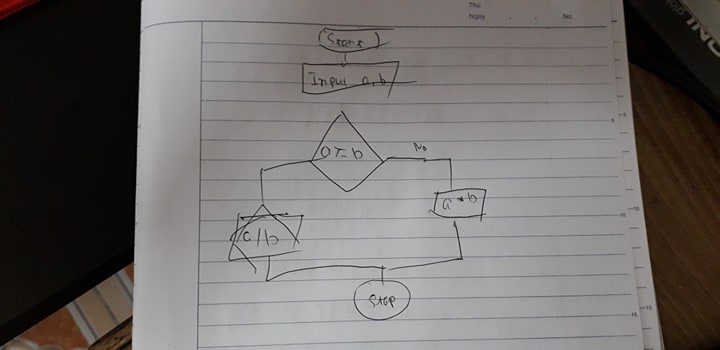 Thứ
Ngày . . No.
Start
Input a, b
No
a * b
Stop
5
10
15